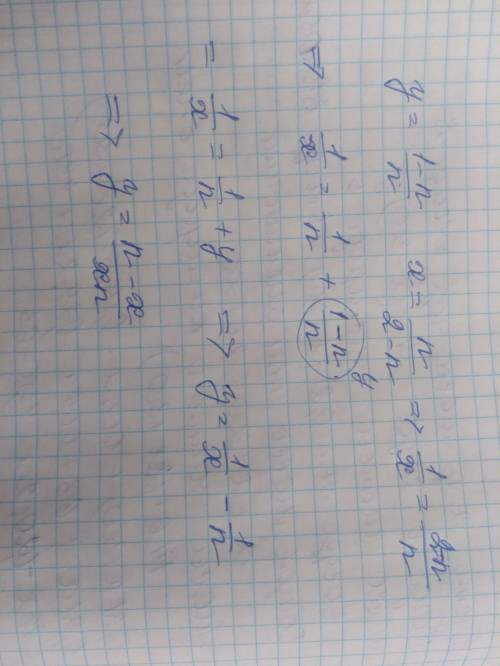 y = \frac{1-n}{n} x = \frac{n}{2-n} => \frac{1}{x} = \frac{2-n}{n}
=> \frac{1}{x} = \frac{1}{n} + \frac{1-n}{n} y
= \frac{1}{x} = \frac{1}{n} + y => y = \frac{1}{x} - \frac{1}{n}
=> y = \frac{n-x}{xn}